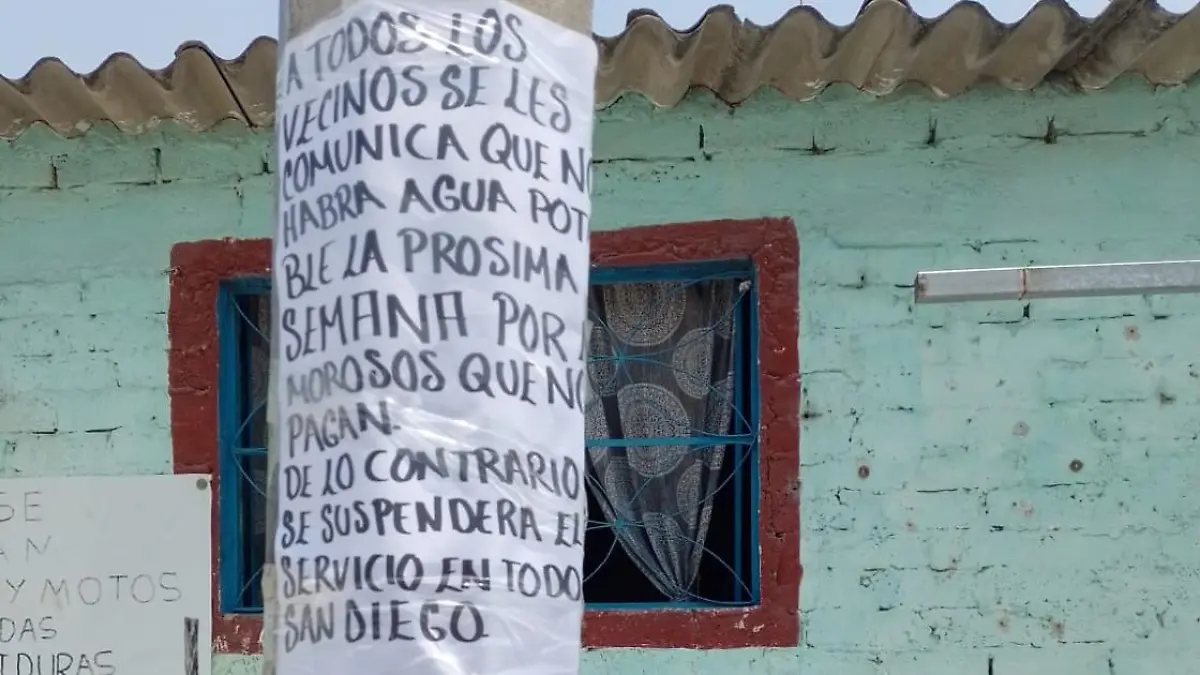 A TODOS LOS
VECINOS SE LES
COMUNICA QUE NO
HABRA AGUA POT
BLE LA PROSIMA
SEMANA POR
MOROSOS QUE NO
PAGAN.
DE LO CONTRARIO
SE SUSPENDERA EL
SERVICIO EN TODO
SAN DIEGO
SE
AN
Y MOTOS
DAS
IDURAS